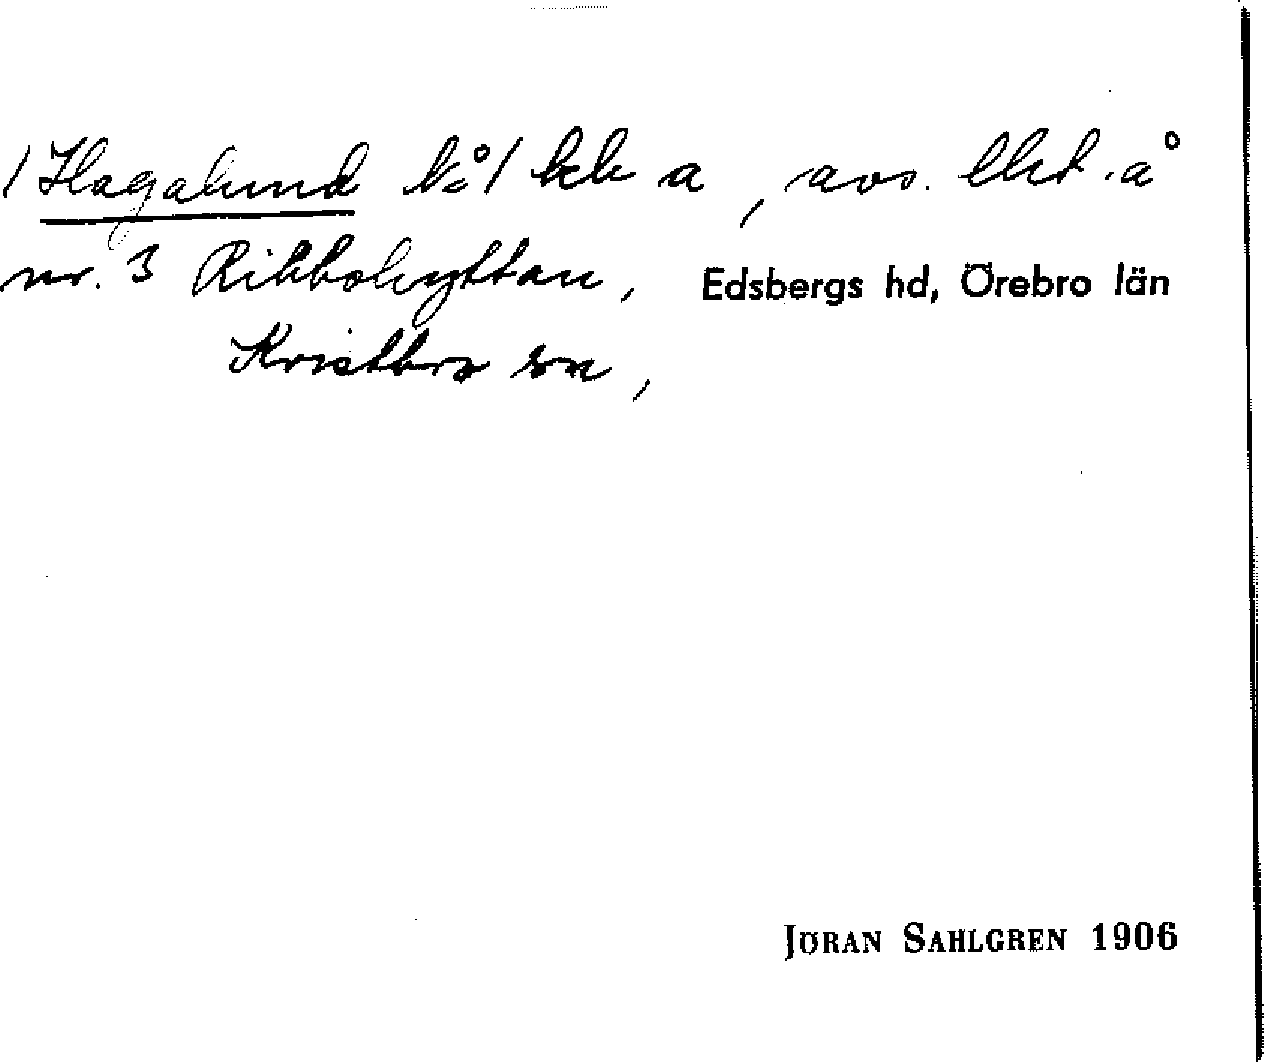 /Hagalund № / bb a, avs. lht. å
nr. 3 Ribbohyttan, Edsbergs hd, Örebro län
Kvistbro sn,
JÖRAN SAHLGREN 1906